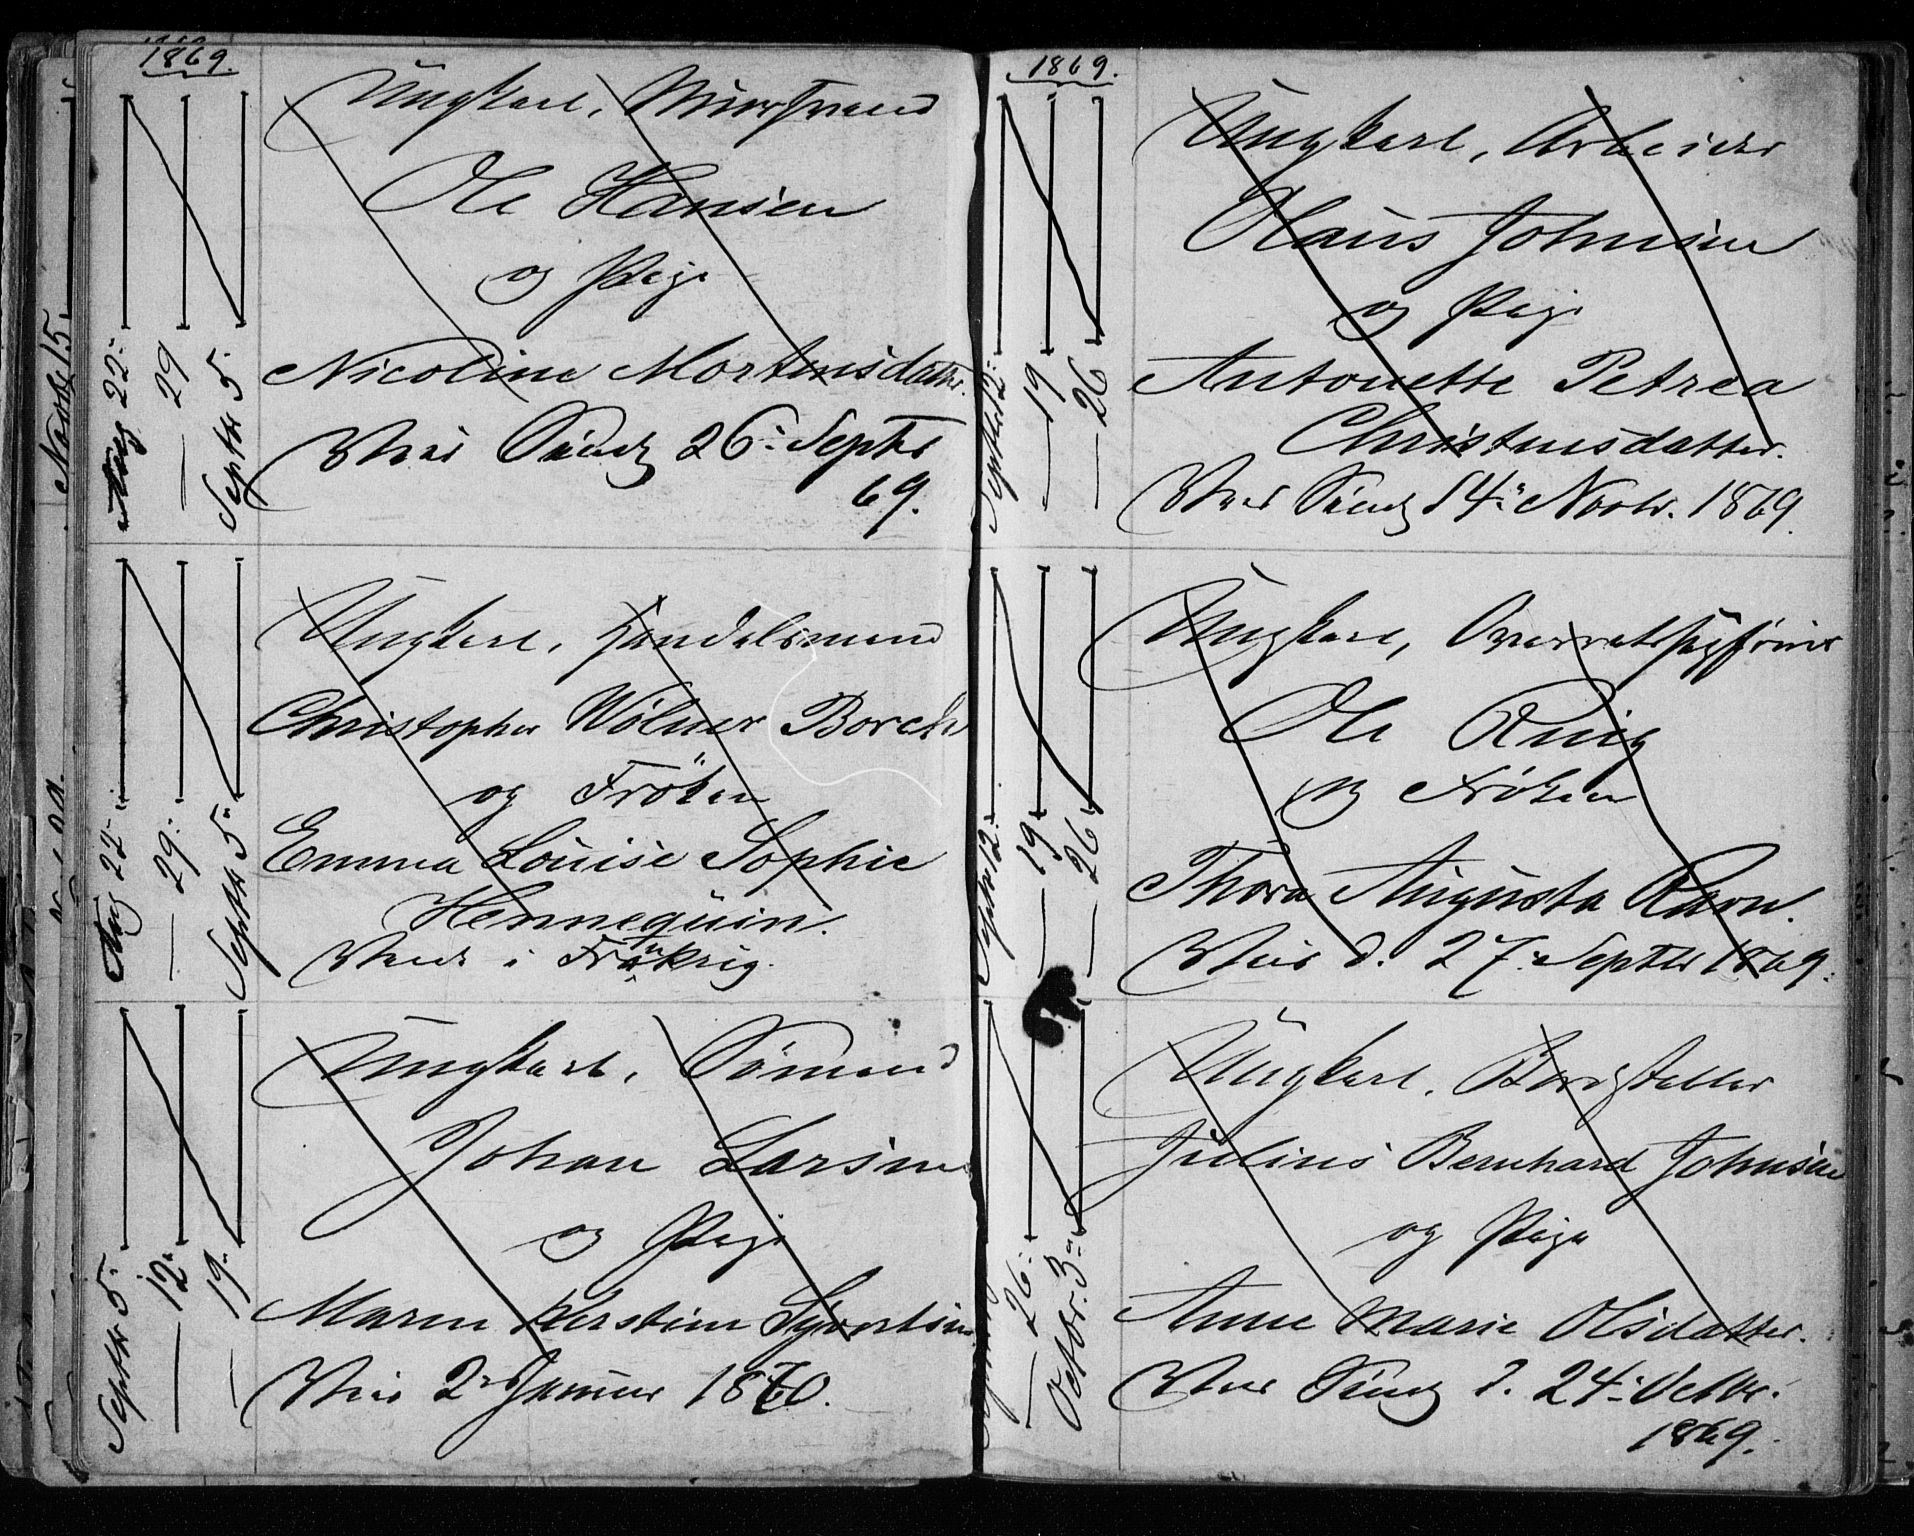 1869.
Aug 22
29
Septbr 5.
Ungkarl, Murssvend
Ole Hansen
og Pige
Nicoline Mortensdatter.
Viet Søndg 26 Septbr
69.
Aug 22
29.
Septbr 5
Ungkarl, Handelsmand
Christopher Wölner Borch
og Fröken
Emma Louise Sophie
Hennequin.
i
Septbr 5
12.
19.
Ungkarl, Sømand
Johan Larsen
og Pige
Maren Kerstine Syvertsen
Viet 2 Januar 1870.
1869.
Septbr 12
19
26
Ungkarl, Arbeider
Olaus Johnsen
og Pige
Antonette Petrea
Christensdatter.
Viet Søndg 14 Novbr. 1869.
Septbr 12.
19
26
Ungkarl, Overretssagfører
Ole Ring
og Frøken
Thora Augusta Ravn.
Viet d. 27 Septbr 1869.
26
Octbr. 3
Ungkarl,
Julius Bernhard Johnsen
og Pige
Anne Marie Olsdatter.
Viet Søndg d. 24 Octbr.
1869.
Novbr 15.